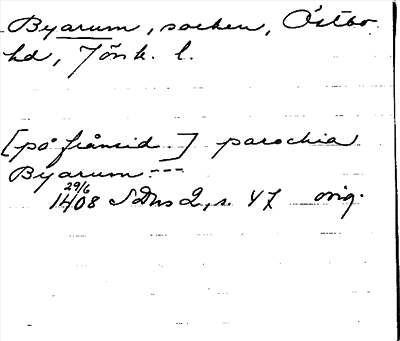 Byarum, socken, Östbo
hd, Jönk. l.
[på frånsid..] parochia
Byarum ---
29/6
1408 SDns 2, s. 47 orig.